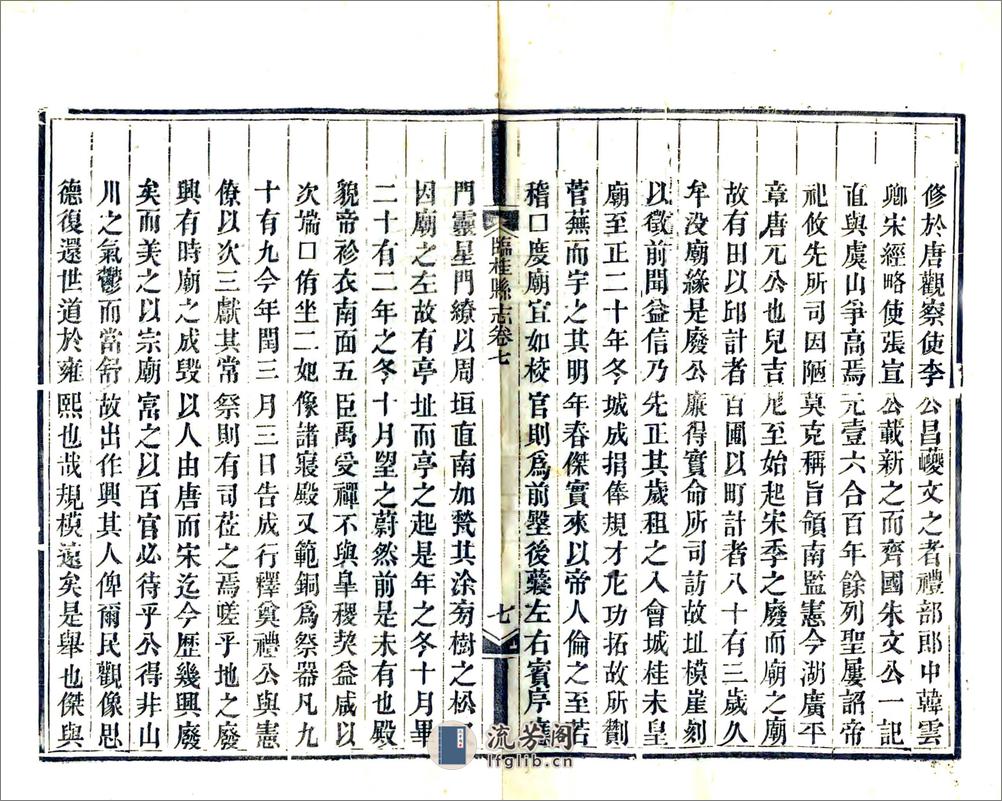 修於唐觀察使李公昌巙文之者禮部郎中韓雲
卿宋經略使張宣公載新之而齊國朱文公一記
直與虞山爭高焉元壹六合百年餘列聖屢詔帝
祀攸先所司因陋莫克稱旨領南監憲今湖廣平
章唐元公也兒吉尼至始起宋季之廢而廟之廟
故有田以邱計者百圃以町計者八十有三歲久
牟沒廟緣是廢公廉得實命所司訪故址模崖刻
以徵前聞益信乃先正其歲租之入會城桂未皇
廟至正二十年冬城成捐俸規才庀功拓故所劗
菅蕪而宇之其明年春傑實來以帝人倫之至若
稽口度廟宜如校官則為前壂後蓺左右賓序
臨桂縣志卷七
七
門靈星門繚以周垣直南加甃其涂旁樹之松
因廟之左故有亭址而亭之起是年之冬十月畢
二十有二年之冬十月望之蔚然前是未有也殿
貌帝袗衣南面五臣禹受禪不與臯稷契益咸以
次端口侑坐二妃像諸寢殿又範銅為祭器凡九
十有九今年閏三月三日告成行釋奠禮公與憲
僚以次三獻其常祭則有司莅之焉嗟乎地之廢
興有時廟之成毀以人由唐而宋迄今歷幾興廢
矣而美之以宗廟富之以百官必待乎公得非山
川之氣鬱而當舒故出作興其人俾爾民觀像思
德復還世道於雍熙也哉規模遠矣是舉也傑與
流芳阁
lfglib.cn